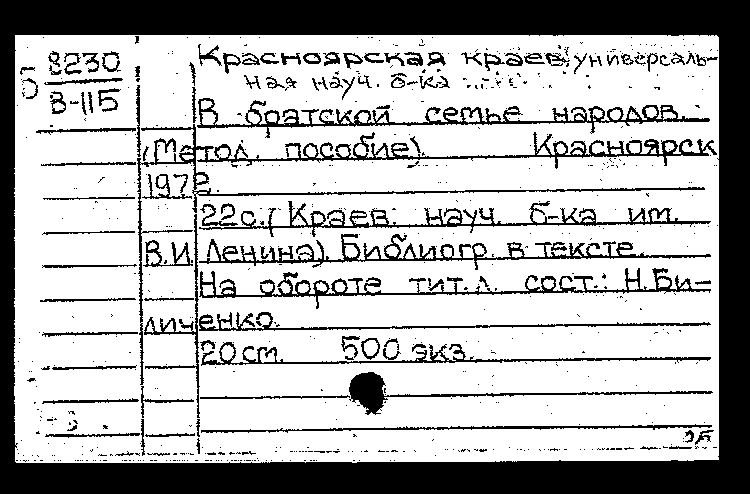 Б 8230
В-115
Красноярская краев. универсаль-
ная науч. б-ка
В братской семье народов.
(Метод. пособие). Красноярск
1972.
22с. (Краев. науч. б-ка им.
В.И. Ленина). Библиогр. в тексте.
На обороте тит. л. сост.: Н. Би-
личенко.
20 см. 500 экз.